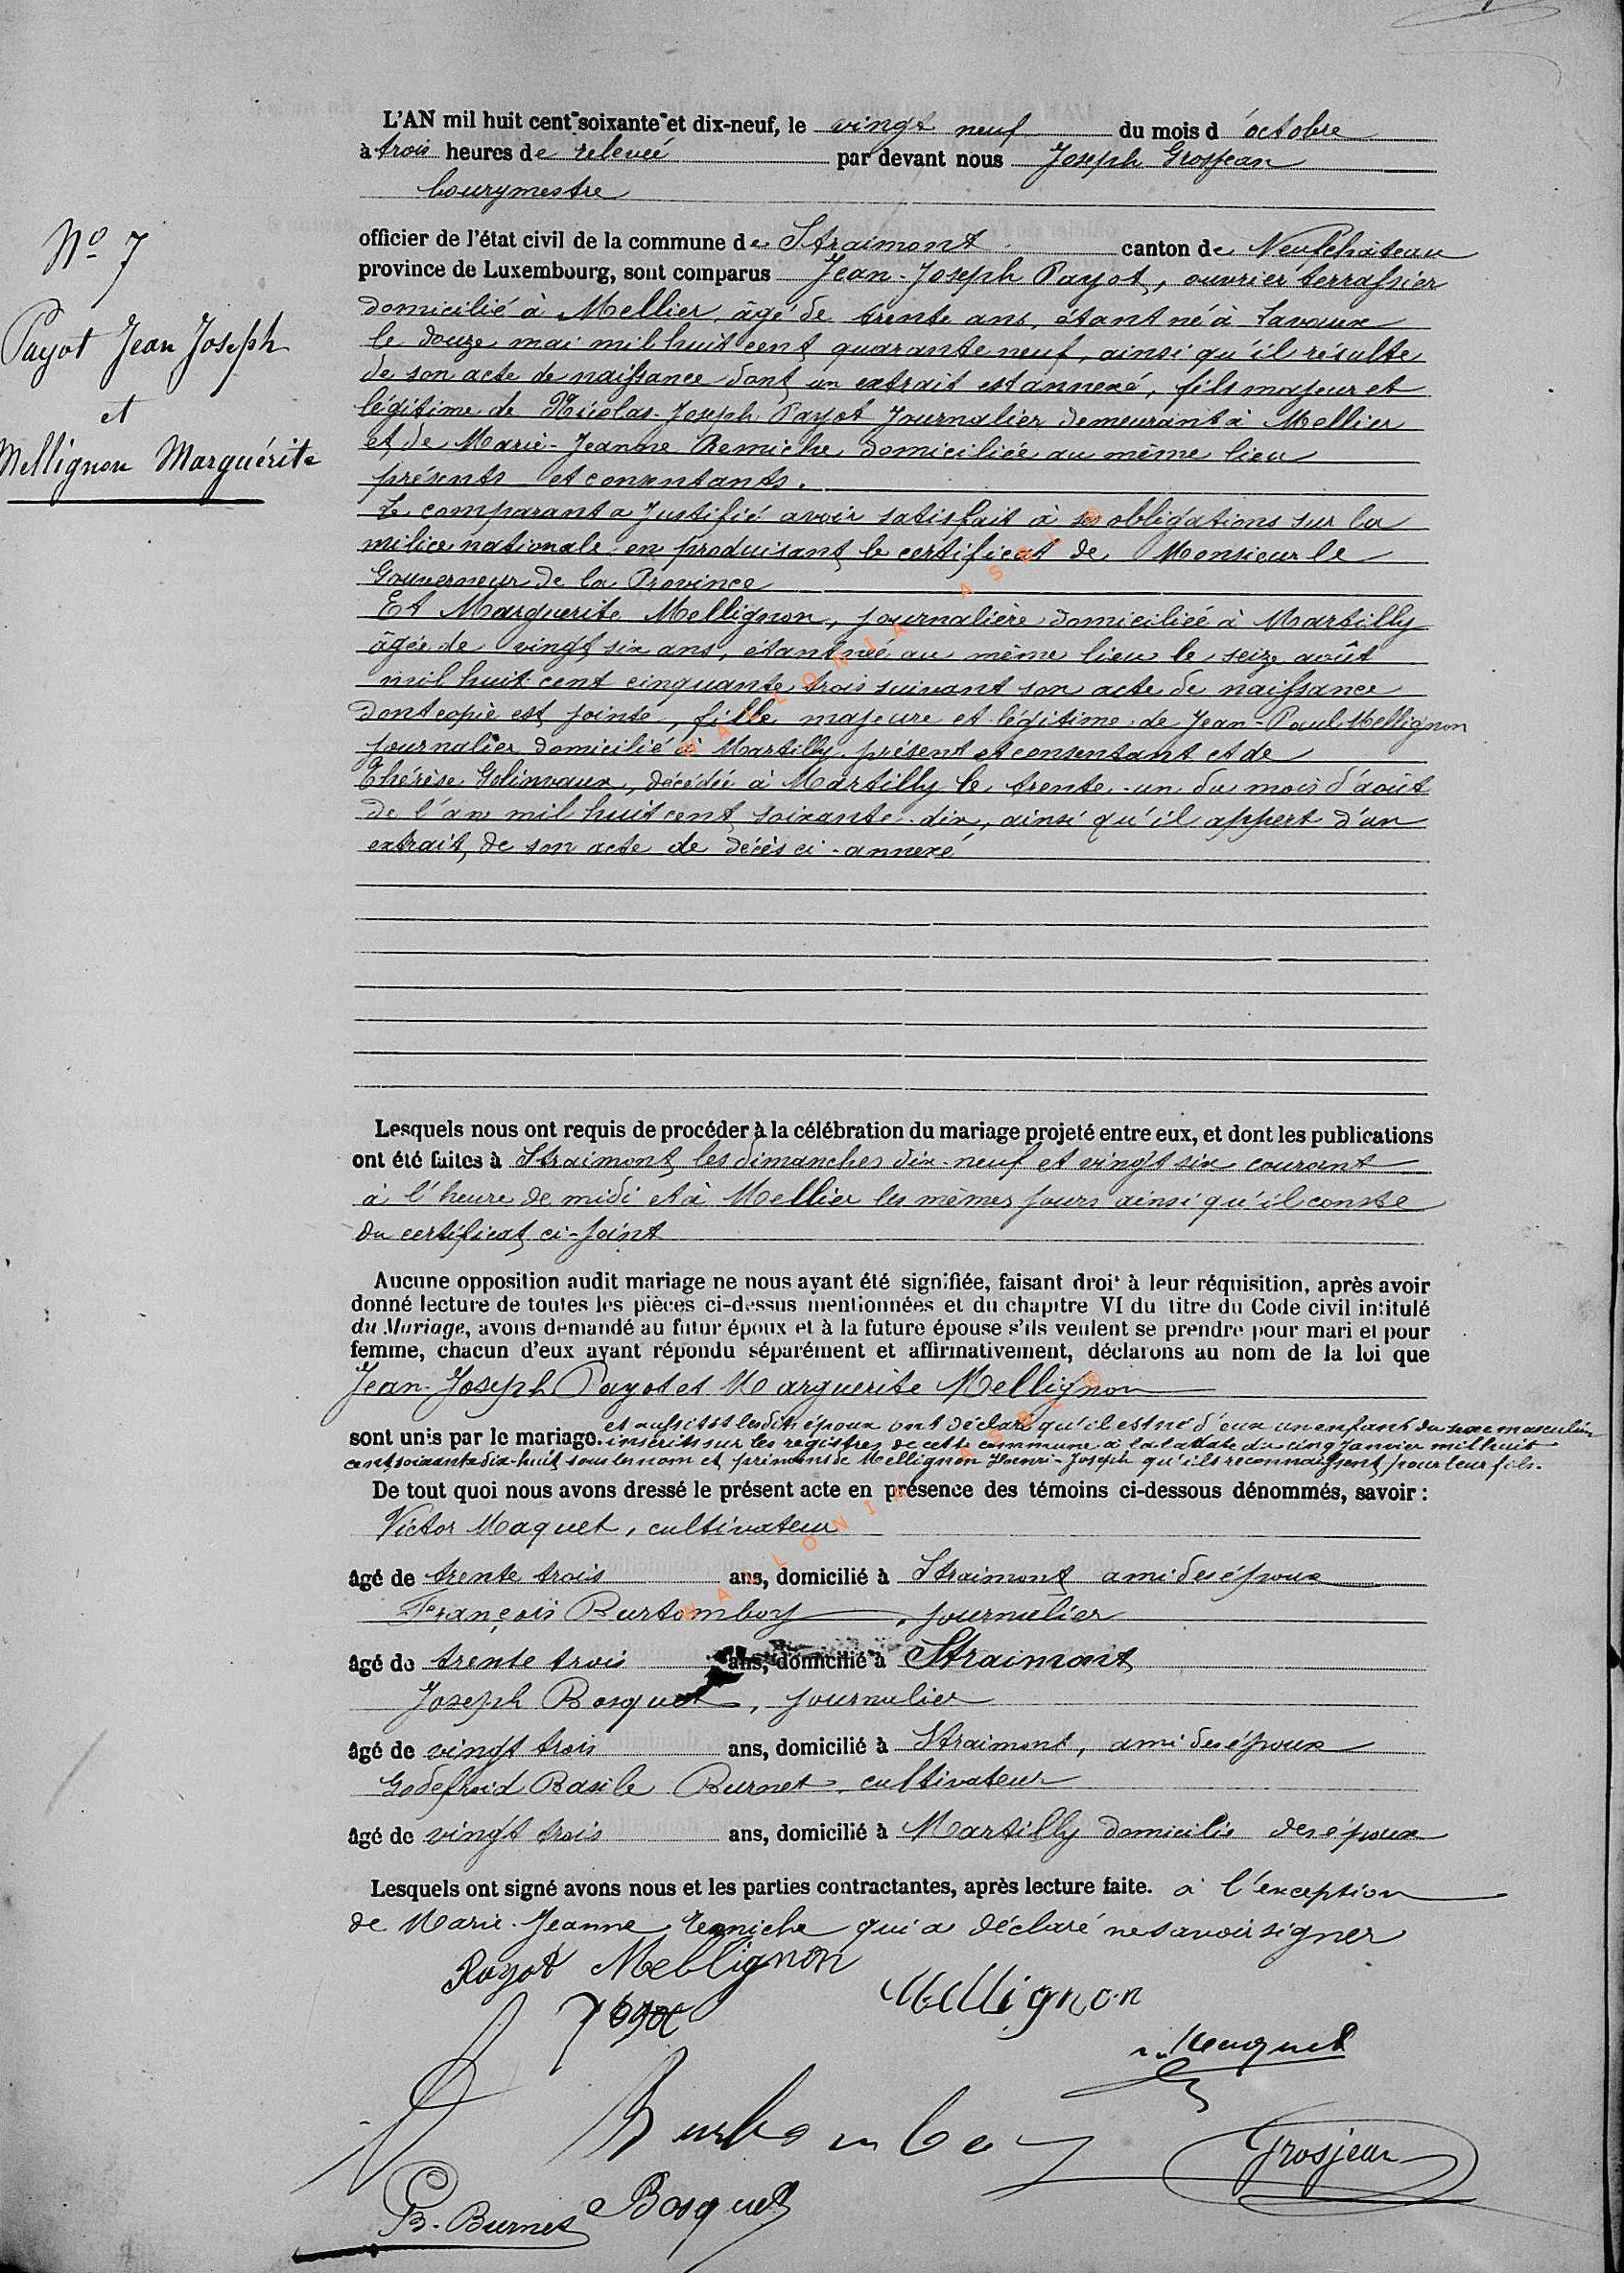 L'AN mil huit cent soixante et dix-neuf, le vingt neuf du mois d'octobre
à trois heures de relevée par devant nous Joseph Grosjean
bourgmestre
officier de l'état civil de la commune de Straimont canton de Neufchâteau
province de Luxembourg, sont comparus Jean-Joseph Payot, ouvrier terrassier
domicilié à Mellier, âgé de trente ans, étant né à Lavaux
le douze mai mil huit cent quarante neuf, ainsi qu'il résulte
de son acte de naissance dont un extrait est annexé, fils majeur et
légitime de Nicolas-Joseph Payot Journalier demeurant à Mellier
et de Marie-Jeanne Remiche domiciliée au même lieu
présents et consentants.
Le comparant a Justifié avoir satisfait à ses obligations sur la
milice nationale en produisant le certificat de Monsieur le
Gouverneur de la Province
Et Marguerite Mellignon, journalière domiciliée à Martilly
âgée de vingt six ans, étant née au même lieu le seize août
mil huit cent cinquante trois suivant son acte de naissance
dont copie est jointe, fille majeure et légitime de Jean-Paul Mellignon
journalier domicilié à Martilly présent et consentant et de
Thérèse Golinvaux, décédée à Martilly le trente-un du mois d'août
de l'an mil huit cent soixante-dix, ainsi qu'il appert d'un
extrait de son acte de décès ci-annexé
No 7
Payot Jean Joseph
et
Mellignon Marguérite
Lesquels nous ont requis de procéder à la célébration du mariage projeté entre eux, et dont les publications
ont été faites à Straimont les dimanches dix-neuf et vingt six courant
à l'heure de midi et à Mellier les mêmes jours ainsi qu'il conste
du certificat ci-joint
Aucune opposition audit mariage ne nous ayant été signifiée, faisant droit à leur réquisition, après avoir
donné lecture de toutes les pièces ci-dessus mentionnées et du chapitre VI du titre du Code civil intitulé
du Mariage, avons demandé au futur époux et à la future épouse s'ils veulent se prendre pour mari et pour
femme, chacun d'eux ayant répondu séparément et affirmativement, déclarons au nom de la loi que
Jean-Joseph Payot et Marguerite Mellignon
et aussitôt lesdits époux ont déclaré qu'il est né d'eux un enfant du sexe masculin
sont unis par le mariage. inscrit sur les registres de cette commune à la date du cinq Janvier mil huit
cent soixante dix-huit sous les nom et prénoms de Mellignon Henri-Joseph qu'ils reconnaissent pour leur fils.
De tout quoi nous avons dressé le présent acte en présence des témoins ci-dessous dénommés, savoir :
Victor Maquet, cultivateur
âgé de trente trois ans, domicilié à Straimont ami des époux
François Burtomboy, journalier
âgé de trente trois ans, domicilié à Straimont
Joseph Bosquet, journalier
âgé de vingt trois ans, domicilié à Straimont, ami des époux
Godefroid Basile Burnet, cultivateur
âgé de vingt trois ans, domicilié à Martilly domicilié des époux
Lesquels ont signé avons nous et les parties contractantes, après lecture faite. à l'exception
de Marie-Jeanne Remiche qui a déclaré ne savoir signer
Payot Mellignon
Mellignon
Maquet
Burtomboy
Grosjean
B. Burnet Bosquet
WALLONIA ASBL
WALLONIA ASBL